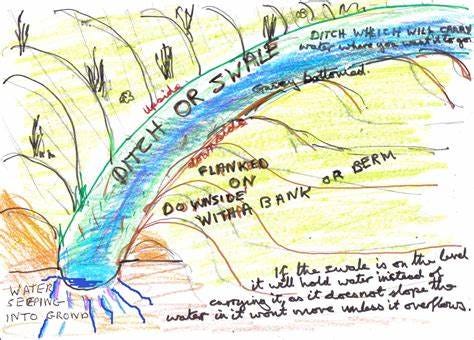 DITCH WHICH WILL CARRY
water where you want it to go.
bottomed.
upside
DITCH OR SWALE
downside
FLANKED
ON
DOWNSIDE
WITH A BANK OR BERM
WATER
SEEPING
INTO GROUND
If the swale is on the level
it will hold water instead of
carrying it, as it doe not slope the
water in it wont move unless it overflows.